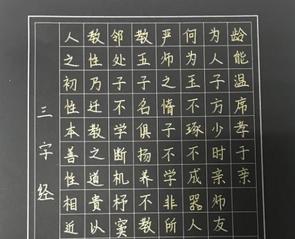 三字经
人之初性本善性相近
教性乃迁教之道贵以
邻处子不学断机杼窦
教五子名俱扬养不教
严师之惰子不学非所
何为玉不琢不成器人
为人子方少时亲师友
龄能温席孝于亲